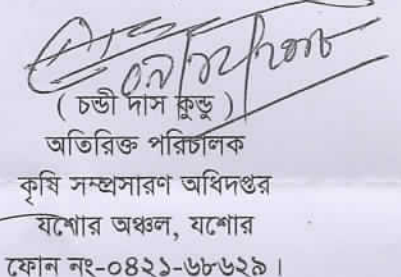 ( চন্ডী দাস কুন্ডু )
অতিরিক্ত পরিচালক
কৃষি সম্প্রসারণ অধিদপ্তর
যশোর অঞ্চল, যশোর
ফোন নং-০৪২১-৬৮৬২৯।